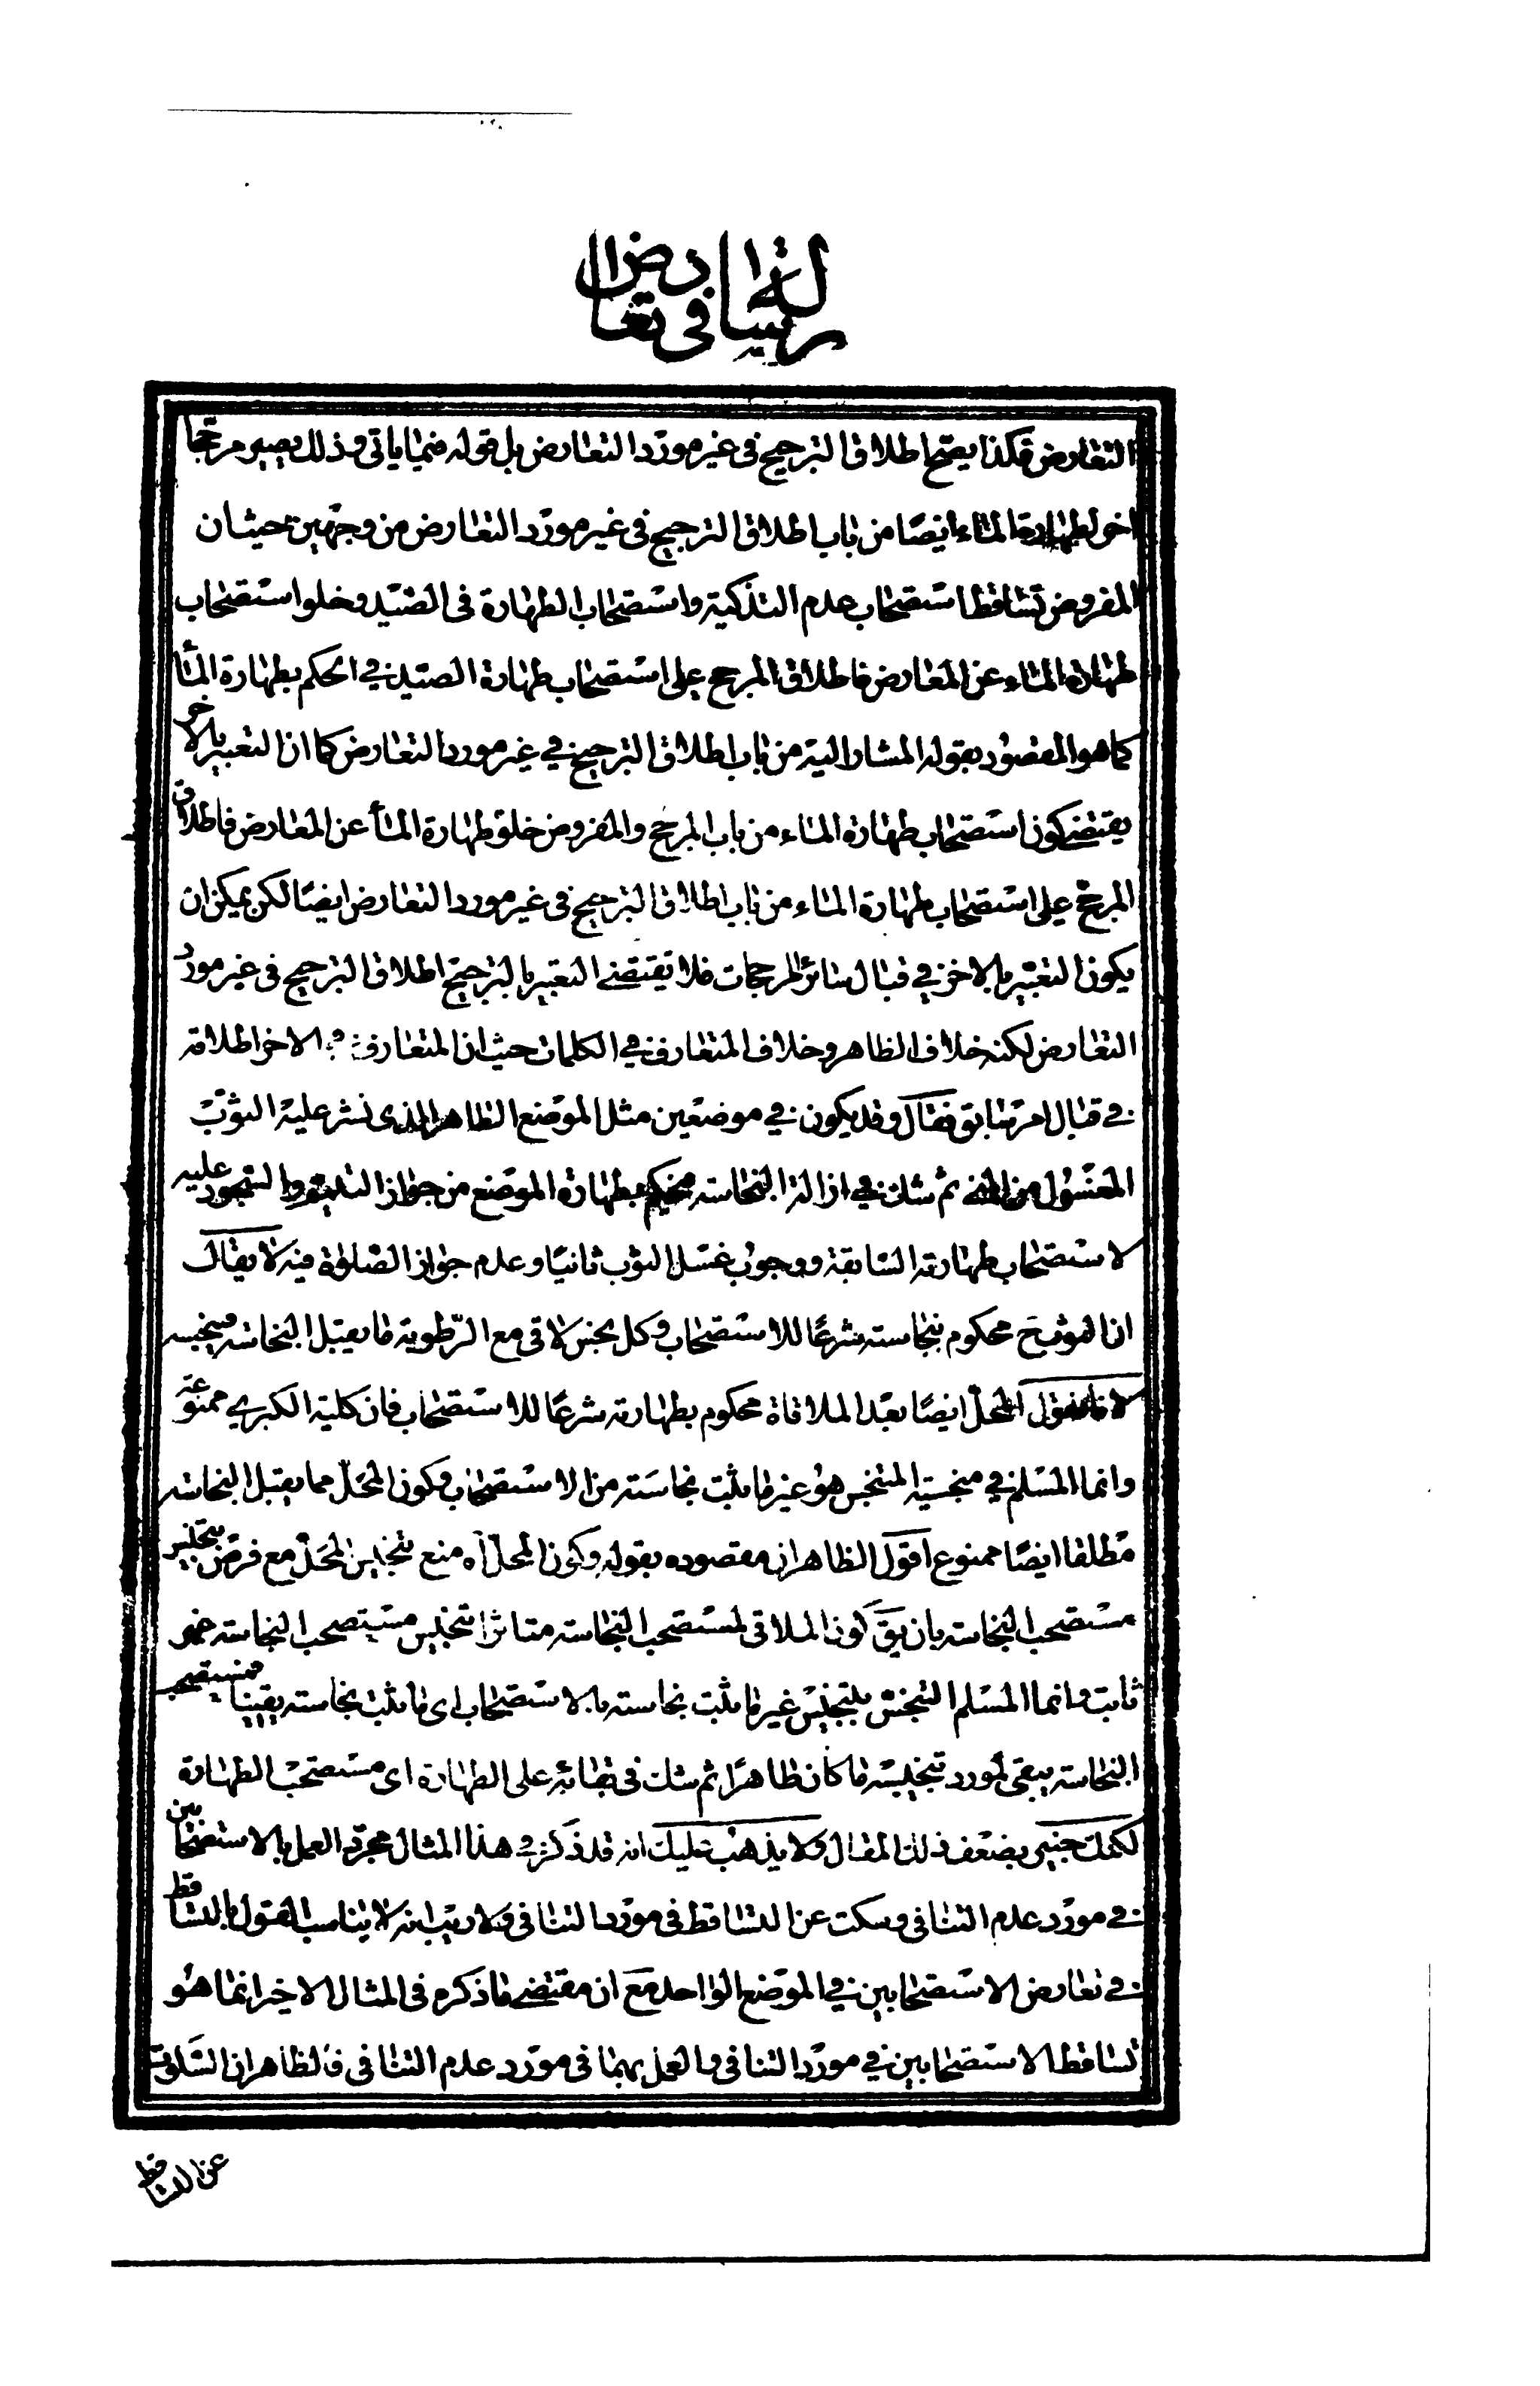 رسالة في تعارض ال
التعارض فكذا يصحّ اطلاق الترجيح فى غير مورد التعارض بل قوله فيما ياتى وذلك يصير مرجحا
اخر لطهارة الماء ايضا من باب اطلاق الترجيح فى غير مورد التعارض من وجهين حيث ان
المفروض تساقط استصحاب عدم التذكية واستصحاب الطهارة فى الصّيد وخلو استصحاب
طهارة الماء عن المعارض فاطلاق المرجح على استصحاب طهارة الصّيد في الحكم بطهارة الماء
كما هو المقصود بقوله المشار اليه من باب اطلاق الترجيح في غير مورد التعارض كما ان التعبير بالاخر
يقتضي كون استصحاب طهارة الماء من باب المرجّح والمفروض خلو طهارة الماء عن المعارض فاطلاق
المرجّح على استصحاب طهارة الماء من باب اطلاق الترجيح فى غير مورد التعارض ايضا لكن يمكن ان
يكون التعبير بالاخر في قبال سائر المرجحات فلا يقتضي التعبير بالترجيح اطلاق الترجيح فى غير مورد
التعارض لكنه خلاف الظاهر وخلاف المتعارف في الكلمات حيث ان المتعارف في الاخر اطلاقه
في قبال امر سابق فقال وقد يكون في موضعين مثل الموضع الطاهر الذى نشر عليه الثوب
المغسول من المني ثم شك في ازالة النجاسة فيحكم بطهارة الموضع من جواز التيمم والسّجود عليه
لاستصحاب طهارته السّابقة ووجوب غسل الثوب ثانيا وعدم جواز الصّلوة فيه لا يقال
ان الثوب ح محكوم بنجاسته شرعًا للاستصحاب وكل نجس لاقى مع الرّطوبة ما يقبل النجاسة فينجسه
لانا نقول المحلّ ايضا بعد الملاقاة محكوم بطهارته شرعًا للاستصحاب فان كلية الكبرى ممنوعة
وانما المسلم في منجسية المتنجس هو غير ما يثبت نجاسته من الاستصحاب وكون المحلّ مما يقبل النجاسة
مطلقا ايضا ممنوع اقول الظاهر ان مقصوده بقوله وكون المحلّ اه منع تنجيس المحلّ مع فرض تنجيس
مستصحب النجاسة بان يقَ كون الملاقى لمستصحب النجاسة متاثرا بتنجيس مستصحب النجاسة غير
ثابت وانما المسلم التنجّس بتنجيس غير ما يثبت نجاسته بالاستصحاب اى ما يثبت نجاسته يقينا فمستصحب
النجاسة يبقى لمورد تنجيسه ما كان طاهرًا ثم شك فى بقائه على الطهارة اى مستصحب الطهارة
لكنك خبير بضعف ذلك المقال ولا يذهب عليك انه قد ذكر في هذا المثال مجرّد العمل بالاستصحابين
في مورد عدم التنافى وسكت عن التساقط فى مورد التنافى ولا ريب انه لا يناسب القول بالتساقط
في تعارض الاستصحابين في الموضع الواحد مع ان مقتضي ما ذكره فى المثال الاخير انما هو
تساقط الاستصحابين في مورد التنافى والعمل بهما فى مورد عدم التنافى فالظاهر ان السّكوت
عن التساقط